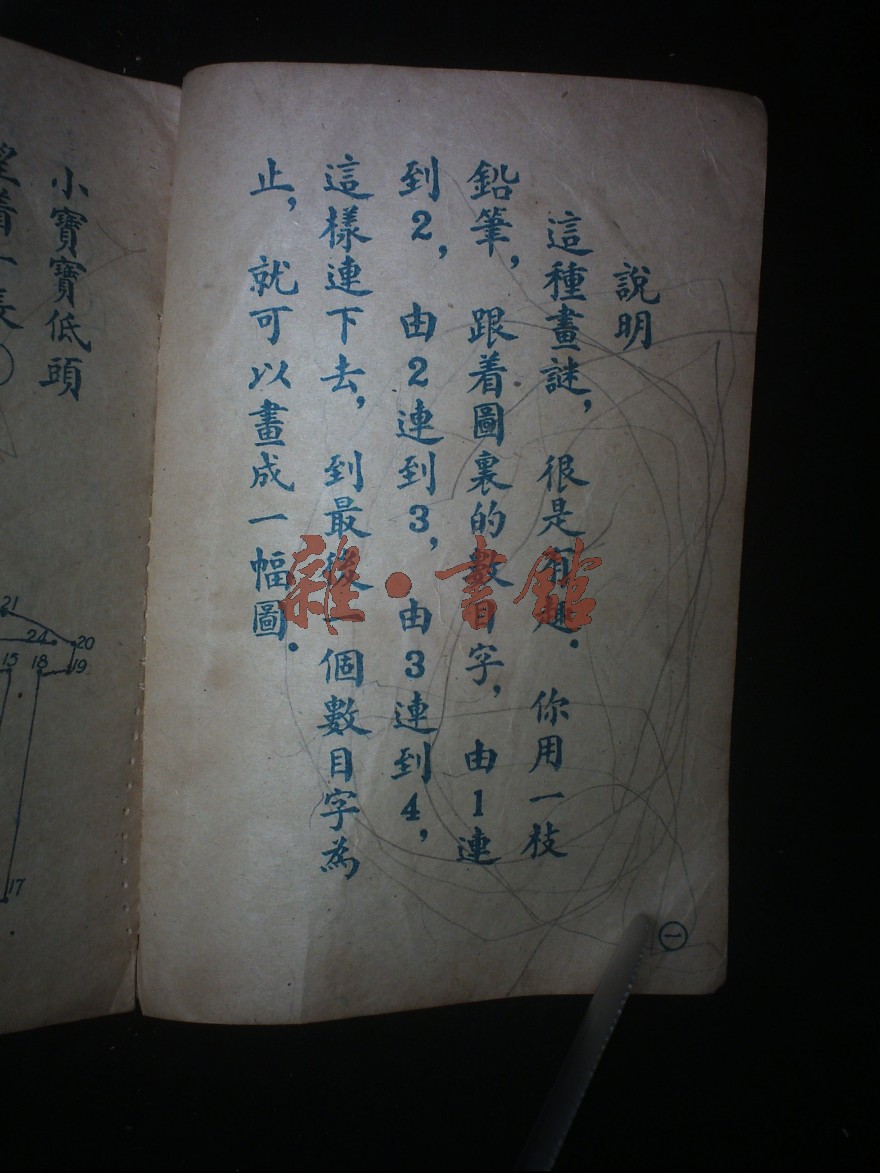 說明
這種畫謎，很是有趣．你用一枝
鉛筆，跟着圖裏的數目字，由1連
到2，由2連到3，由3連到4，
這樣連下去，到最後一個數目字為
止，就可以畫成一幅圖．
㊀
小寶寶低頭
着一長
21
24
20
15
18
19
17
雜·書館